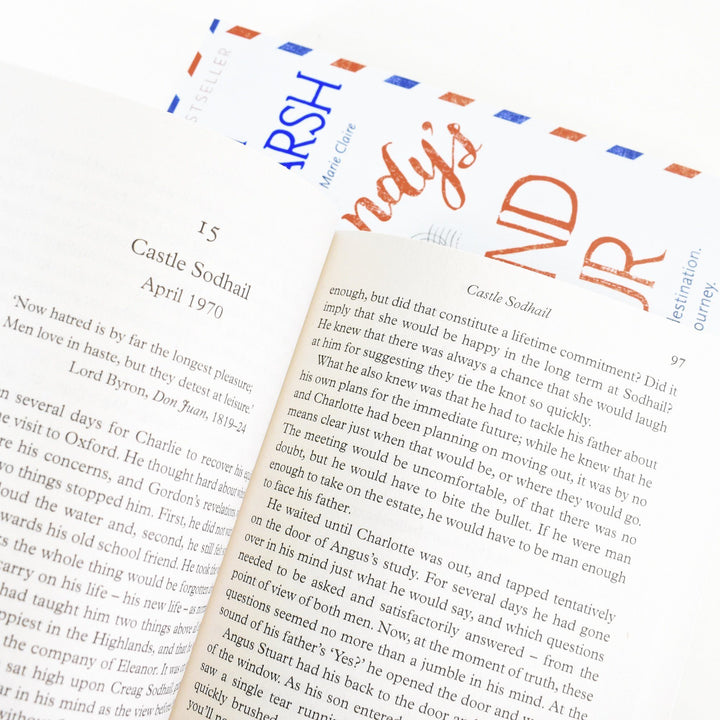 STSELLER
ARSH
Marie Claire
ndy's
ND
UR
destination.
ourney.
15
Castle Sodhail
April 1970
'Now hatred is by far the longest pleasure;
Men love in haste, but they detest at leisure.'
Lord Byron, Don Juan, 1819–24
n several days for Charlie to recover his
e visit to Oxford. He thought hard about
re his concerns, and Gordon's revelations
wo things stopped him. First, he did not
loud the water and, second, he still felt
wards his old school friend. He took the
ts the whole thing would be forgotten
carry on his life – his new life – as norm
had taught him two things above all
ppiest in the Highlands, and that
the company of Eleanor. It was
sat high upon Creag Sodhail,
ar in his mind as the view before
Castle Sodhail
97
enough, but did that constitute a lifetime commitment? Did it
imply that she would be happy in the long term at Sodhail?
He knew that there was always a chance that she would laugh
at him for suggesting they tie the knot so quickly.
What he also knew was that he had to tackle his father about
his own plans for the immediate future; while he knew that he
and Charlotte had been planning on moving out, it was by no
means clear just when that would be, or where they would go.
The meeting would be uncomfortable, of that there was no
doubt, but he would have to bite the bullet. If he were man
enough to take on the estate, he would have to be man enough
to face his father.
He waited until Charlotte was out, and tapped tentatively
on the door of Angus's study. For several days he had gone
over in his mind just what he would say, and which questions
needed to be asked and satisfactorily answered – from the
point of view of both men. Now, at the moment of truth, these
questions seemed no more than a jumble in his mind. At the
sound of his father's 'Yes?' he opened the door and w
Angus Stuart had his back to the door and
of the window. As his son entered
saw a single tear runnin
quickly brushed
you'll ne